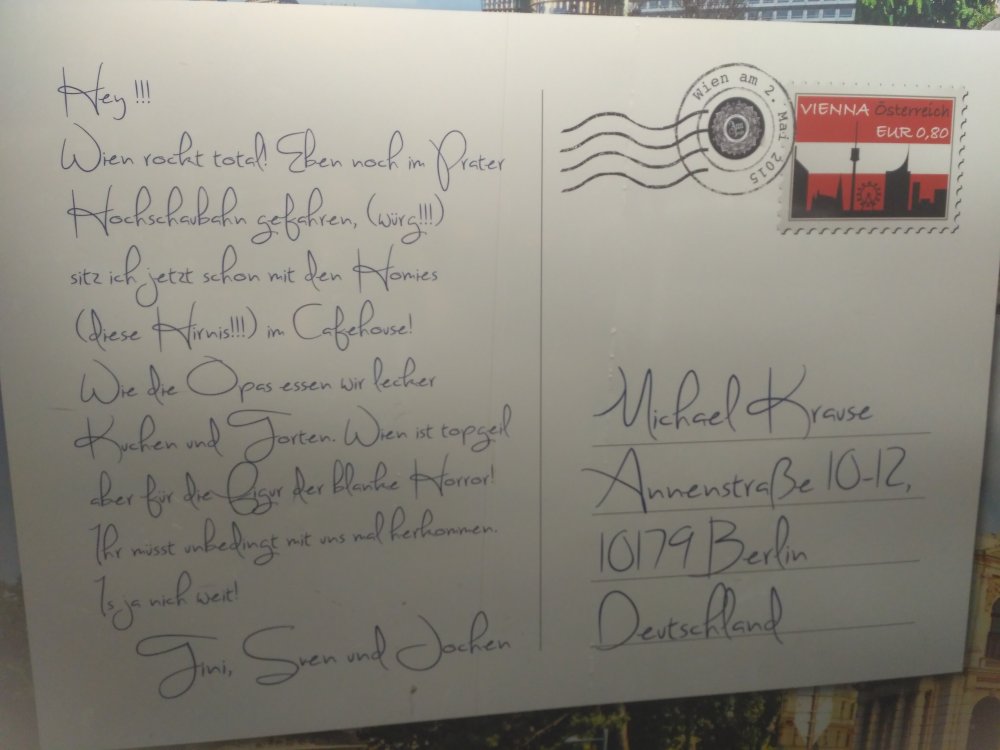 Hey !!!
Wien rockt total! Eben noch im Prater
Hochschaubahn gefahren, (würg!!!)
sitz ich jetzt schon mit den Homies
(diese Hirnis!!!) im Cafehouse!
Wie die Opas essen wir lecker
Kuchen und Torten. Wien ist topgeil
aber für die Figur der blanke Horror!
Ihr müsst unbedingt mit uns mal herkommen.
Is ja nich weit!
Tini, Sven und Jochen
Wien am 2. Mai 2015
VIENNA Österreich
EUR 0,80
Michael Krause
Annenstraße 10-12,
10179 Berlin
Deutschland